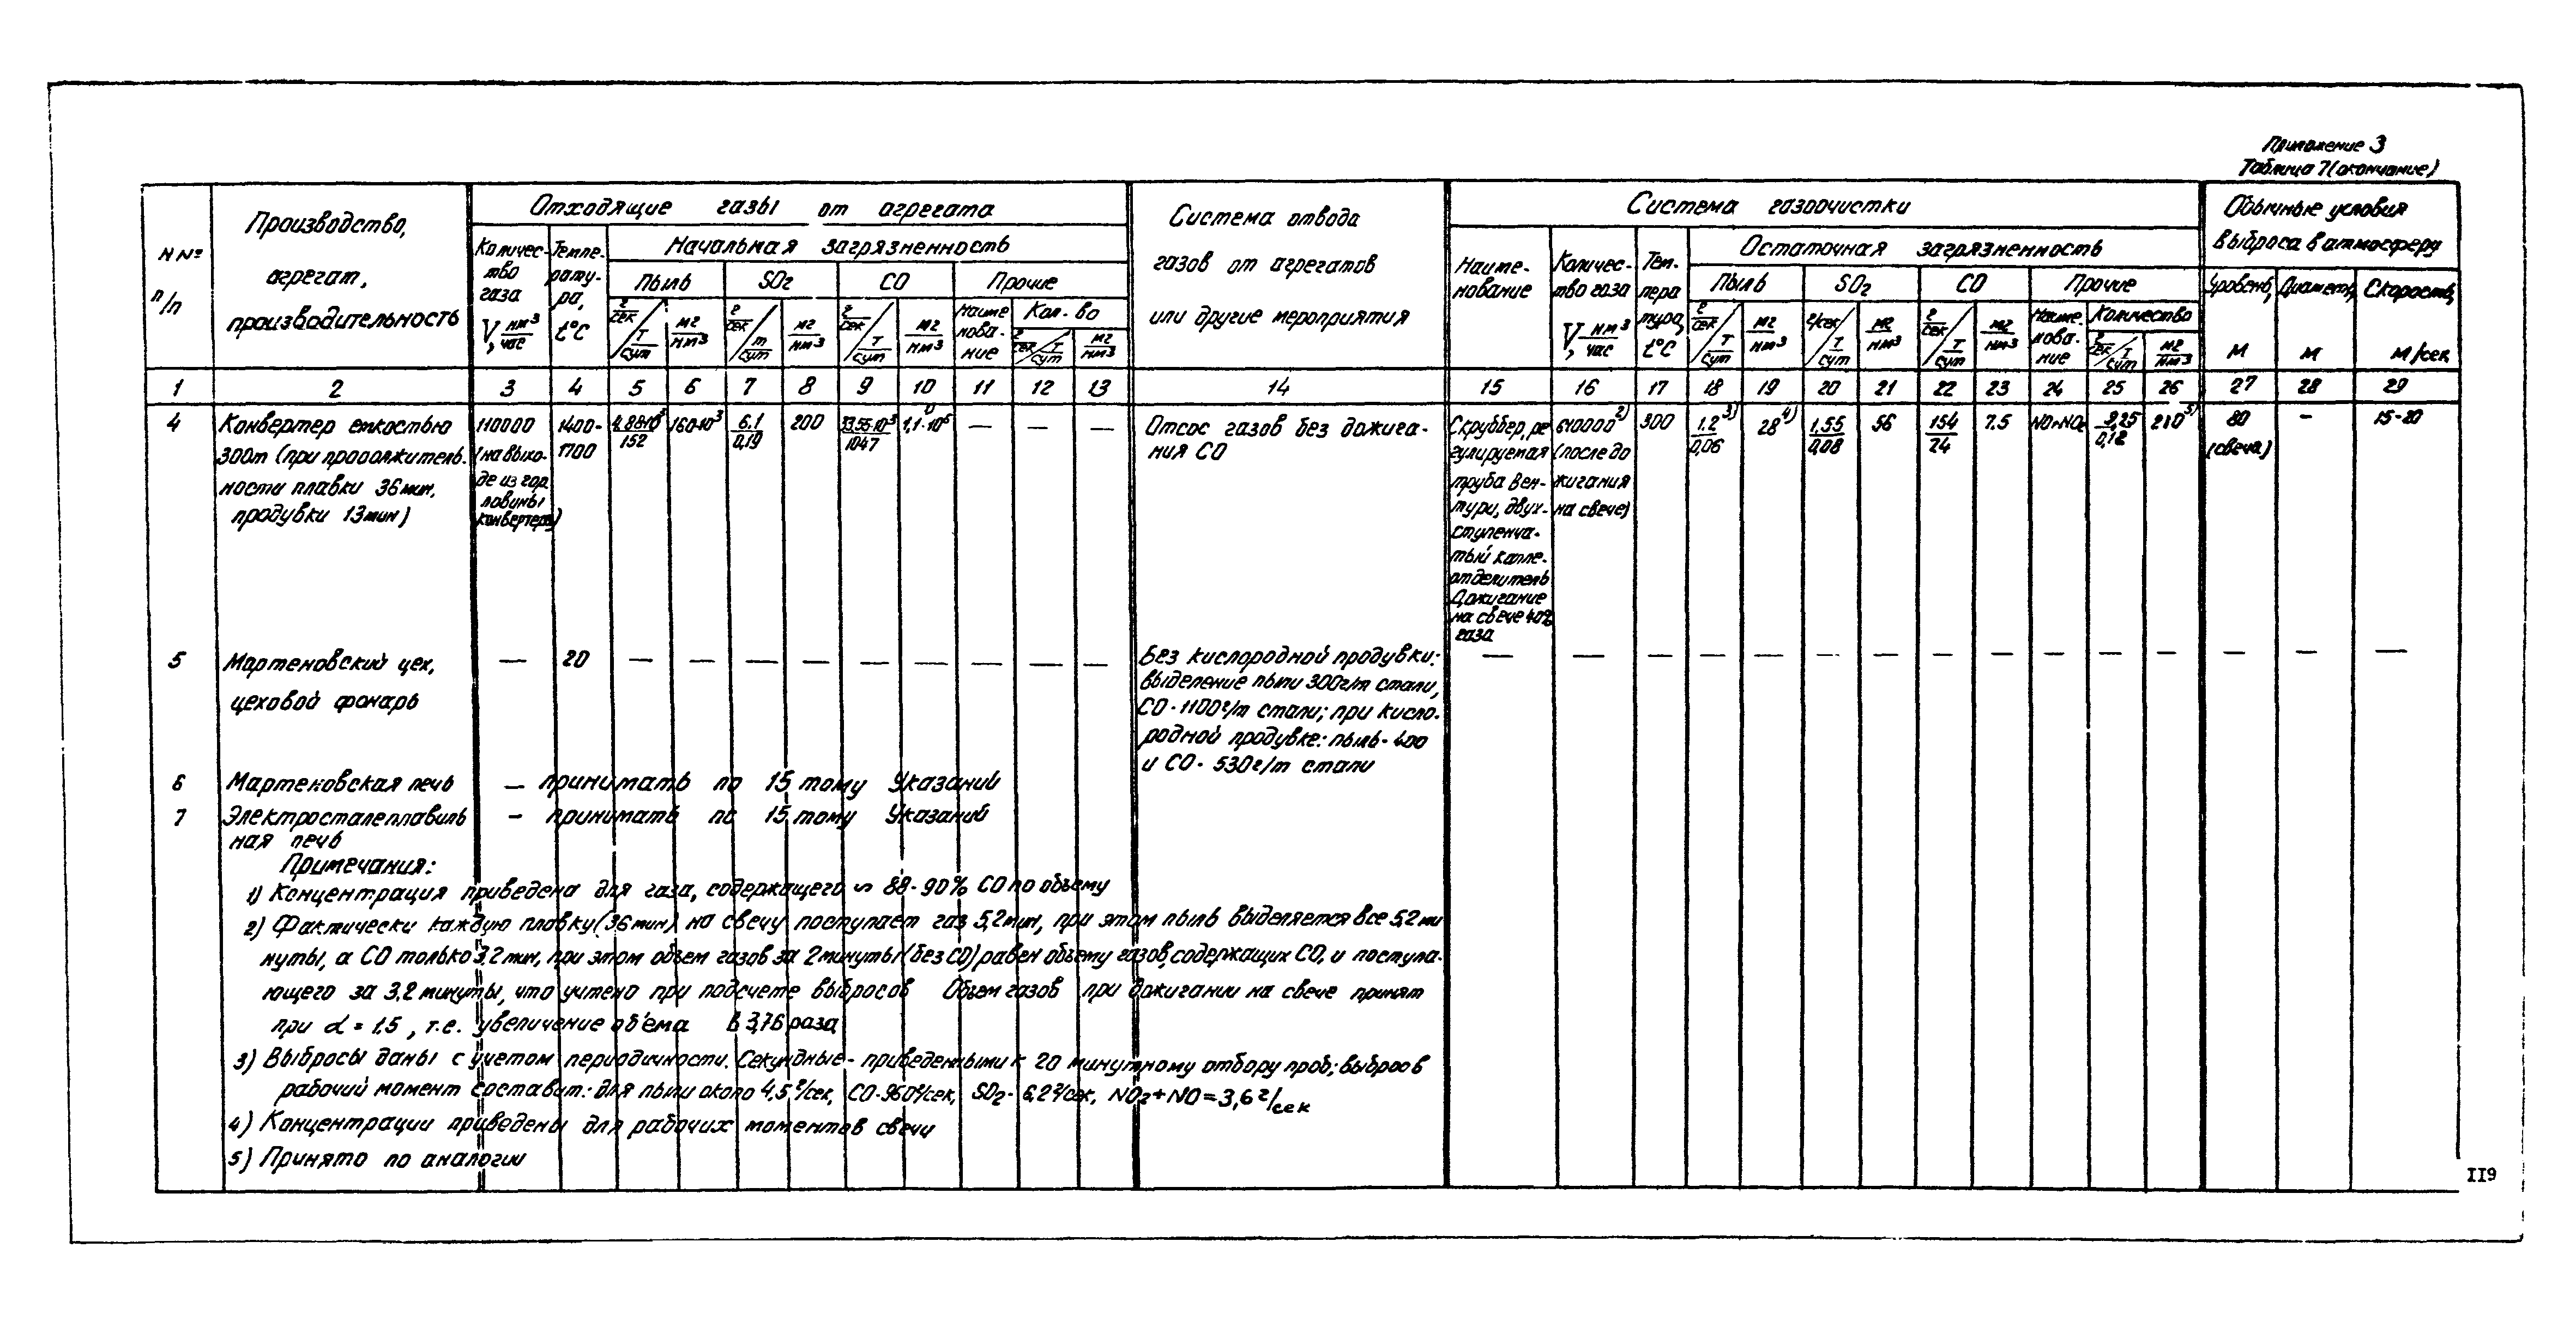 Приложение 3
Таблица 7 (окончание)
N №
п/п
Производство,
агрегат,
производительность
Отходящие газы от агрегата
Количес-
тво
газа
V, нм³/час
Темпе-
рату-
ра,
t°C
Начальная загрязненность
Пыль
SO₂
CO
Прочие
г/сек / т/сут
мг/нм³
г/сек / т/сут
мг/нм³
г/сек / т/сут
мг/нм³
Наиме
нова-
ние
Кол-во
г/сек / т/сут
мг/нм³
Система отвода
газов от агрегатов
или другие мероприятия
Система газоочистки
Наиме-
нование
Количес-
тво газа
V, нм³/час
Тем-
пера
тура,
t°C
Остаточная загрязненность
Пыль
SO₂
CO
Прочие
г/сек / т/сут
мг/нм³
г/сек / т/сут
мг/нм³
г/сек / т/сут
мг/нм³
Наиме-
нова-
ние
Количество
г/сек / т/сут
мг/нм³
Обычные условия
выброса в атмосферу
Уровень,
м
Диаметр,
м
Скорость,
м/сек
1 2 3 4 5 6 7 8 9 10 11 12 13 14 15 16 17 18 19 20 21 22 23 24 25 26 27 28 29
4
Конвертер емкостью
300т (при продолжитель-
ности плавки 36мин,
продувки 13мин)
110000
(на выхо-
де из гор
ловины
конвертера)
1400-
1700
152
160·10³
6.1
0,19
200
33.56·10³
1047
1,1·10⁶ ¹⁾
— — —
Отсос газов без дожига-
ния CO
Скруббер, ре
гулируемая
труба Вен-
тури, двух-
ступенча-
тый капле-
отделитель
Дожигание
на свече 40%
газа
610000²⁾
(после до
жигания
на свече)
300
1.2³⁾
0,06
28⁴⁾
1.55
0,08
56
154
24
7.5
NO+NO₂
0,12
210⁵⁾
80
(свеча)
—
15-20
5
Мартеновский цех,
цеховой фонарь
— 20 — — — — — — — — —
Без кислородной продувки:
выделение пыли 300г/т стали,
CO-1100г/т стали; при кисло-
родной продувке: пыль-400
и CO- 530г/т стали
— — — — — — — — — — — — — — —
6 Мартеновская печь — принимать по 15 тому Указаний
7 Электросталеплавиль — принимать по 15 тому Указаний
ная печь
Примечания:
1) Концентрация приведена для газа, содержащего ∽ 88-90% CO по объему
2) Фактически каждую плавку (36мин) на свечу поступает газ 5,2мин, при этом пыль выделяется все 5,2 ми
нуты, а CO только 3,2 мин, при этом объем газов за 2минуты (без CO) равен объему газов, содержащих CO, и поступа-
ющего за 3,2 минуты, что учтено при подсчете выбросов Объем газов при дожигании на свече принят
при α = 1.5, т.е. увеличение объема в 3,76 раза
3) Выбросы даны с учетом периодичности. Секундные - приведенными к 20 минутному отбору проб; выброс в
рабочий момент составит: для пыли около 4,5 г/сек, CO-960г/сек, SO₂- 6,2г/сек, NO₂+NO=3,6 г/сек
4) Концентрации приведены для рабочих моментов свечи
5) Принято по аналогии
II9